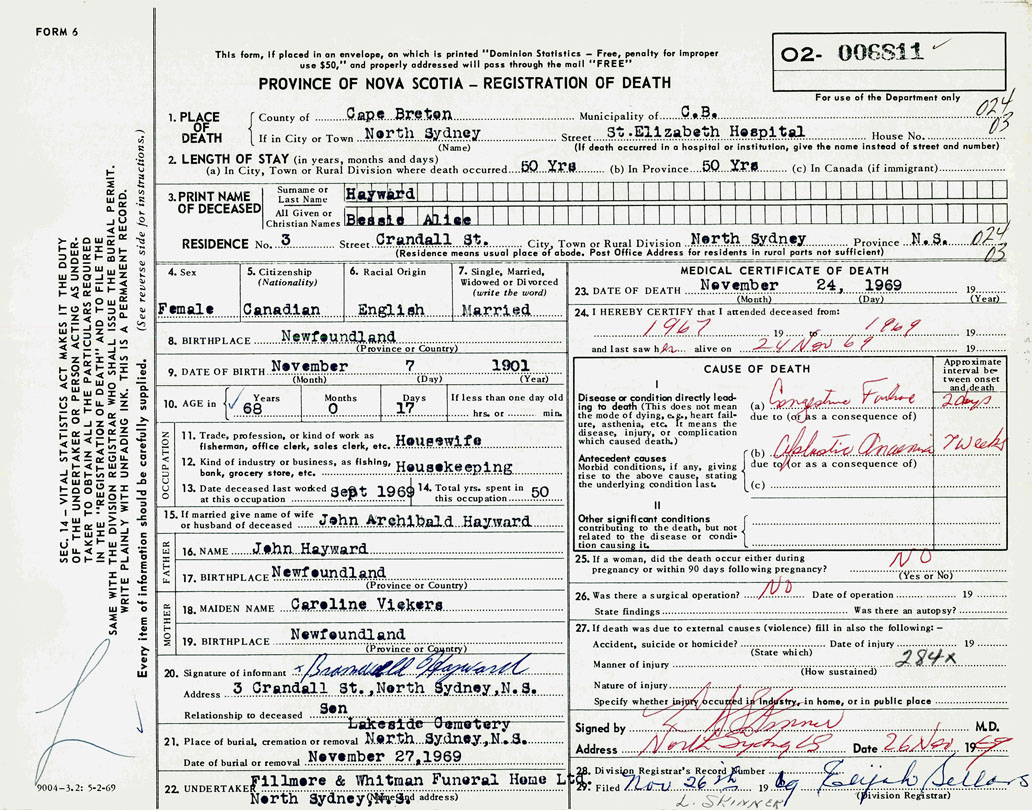 FORM 6
This form, if placed in an envelope, on which is printed "Dominion Statistics – Free, penalty for improper
use $50," and properly addressed will pass through the mail "FREE"
PROVINCE OF NOVA SCOTIA – REGISTRATION OF DEATH
02- 006811
For use of the Department only
024
03
1. PLACE OF DEATH
County of Cape Breton Municipality of C.B.
If in City or Town North Sydney Street St.Elizabeth Hospital House No.
(Name) (If death occurred in a hospital or institution, give the name instead of street and number)
2. LENGTH OF STAY (in years, months and days)
(a) In City, Town or Rural Division where death occurred 50 Yrs (b) In Province 50 Yrs (c) In Canada (if immigrant)
3. PRINT NAME OF DECEASED
Surname or Last Name Hayward
All Given or Christian Names Bessie Alice
RESIDENCE No. 3 Street Crandall St. City, Town or Rural Division North Sydney Province N.S. 024
(Residence means usual place of abode. Post Office Address for residents in rural parts not sufficient) 03
4. Sex
Female
5. Citizenship
(Nationality)
Canadian
6. Racial Origin
English
7. Single, Married,
Widowed or Divorced
(write the word)
Married
8. BIRTHPLACE Newfoundland
(Province or Country)
9. DATE OF BIRTH November 7 1901
(Month) (Day) (Year)
10. AGE in Years Months Days If less than one day old
68 0 17 hrs. or min.
OCCUPATION
11. Trade, profession, or kind of work as
fisherman, office clerk, sales clerk, etc. Housewife
12. Kind of industry or business, as fishing,
bank, grocery store, etc. Housekeeping
13. Date deceased last worked
at this occupation Sept 1969
14. Total yrs. spent in
this occupation 50
15. If married give name of wife
or husband of deceased John Archibald Hayward
FATHER
16. NAME John Hayward
17. BIRTHPLACE Newfoundland
(Province or Country)
MOTHER
18. MAIDEN NAME Caroline Vickers
19. BIRTHPLACE Newfoundland
(Province or Country)
20. Signature of informant x Hayward
Address 3 Crandall St.,North Sydney,N.S.
Relationship to deceased Son
Lakeside Cemetery
21. Place of burial, cremation or removal North Sydney,N.S.
Date of burial or removal November 27,1969
22. UNDERTAKER Fillmore & Whitman Funeral Home Ltd.
North Sydney,N.S.
(Name and address)
MEDICAL CERTIFICATE OF DEATH
23. DATE OF DEATH November 24, 1969 19
(Month) (Day) (Year)
24. I HEREBY CERTIFY that I attended deceased from:
1967 19 to 1969
and last saw her alive on 24 Nov 69 19
CAUSE OF DEATH
Approximate
interval be-
tween onset
and death
I
Disease or condition directly lead-
ing to death (This does not
mean the mode of dying, e.g., heart failure,
asthenia, etc. It means the
disease, injury, or complication
which caused death.)
(a) Congestive Failure 2 days
due to (or as a consequence of)
Antecedent causes
Morbid conditions, if any, giving
rise to the above cause, stating
the underlying condition last.
(b) Aplastic Anaemia 7 weeks
due to (or as a consequence of)
(c)
II
Other significant conditions
contributing to the death, but not
related to the disease or condi-
tion causing it.
25. If a woman, did the death occur either during
pregnancy or within 90 days following pregnancy? NO
(Yes or No)
26. Was there a surgical operation? NO Date of operation 19
State findings Was there an autopsy?
27. If death was due to external causes (violence) fill in also the following: –
Accident, suicide or homicide? Date of injury 19
(State which)
Manner of injury 284x
(How sustained)
Nature of injury
Specify whether injury occurred in Industry, in home, or in public place
Signed by M.D.
Address North Sydney NS Date 26 Nov 1969
28. Division Registrar's Record Number
29. Filed Nov 26th 1969 Elijah Sellars
(Division Registrar)
L. SKINNER
SEC. 14 – VITAL STATISTICS ACT MAKES IT THE DUTY
OF THE UNDERTAKER OR PERSON ACTING AS UNDER-
TAKER TO OBTAIN ALL THE PARTICULARS REQUIRED
IN THE "REGISTRATION OF DEATH" AND TO FILE THE
SAME WITH THE DIVISION REGISTRAR WHO SHALL ISSUE THE BURIAL PERMIT.
WRITE PLAINLY WITH UNFADING INK. THIS IS A PERMANENT RECORD.
Every item of information should be carefully supplied. (See reverse side for instructions.)
9004-3.2: 5-2-69